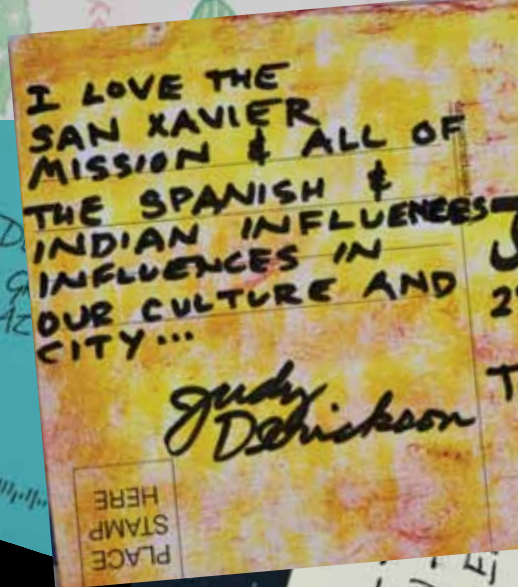 I LOVE THE
SAN XAVIER
MISSION & ALL OF
THE SPANISH &
INDIAN INFLUENCES
INFLUENCES IN
OUR CULTURE AND
CITY...
Judy
PLACE
STAMP
HERE